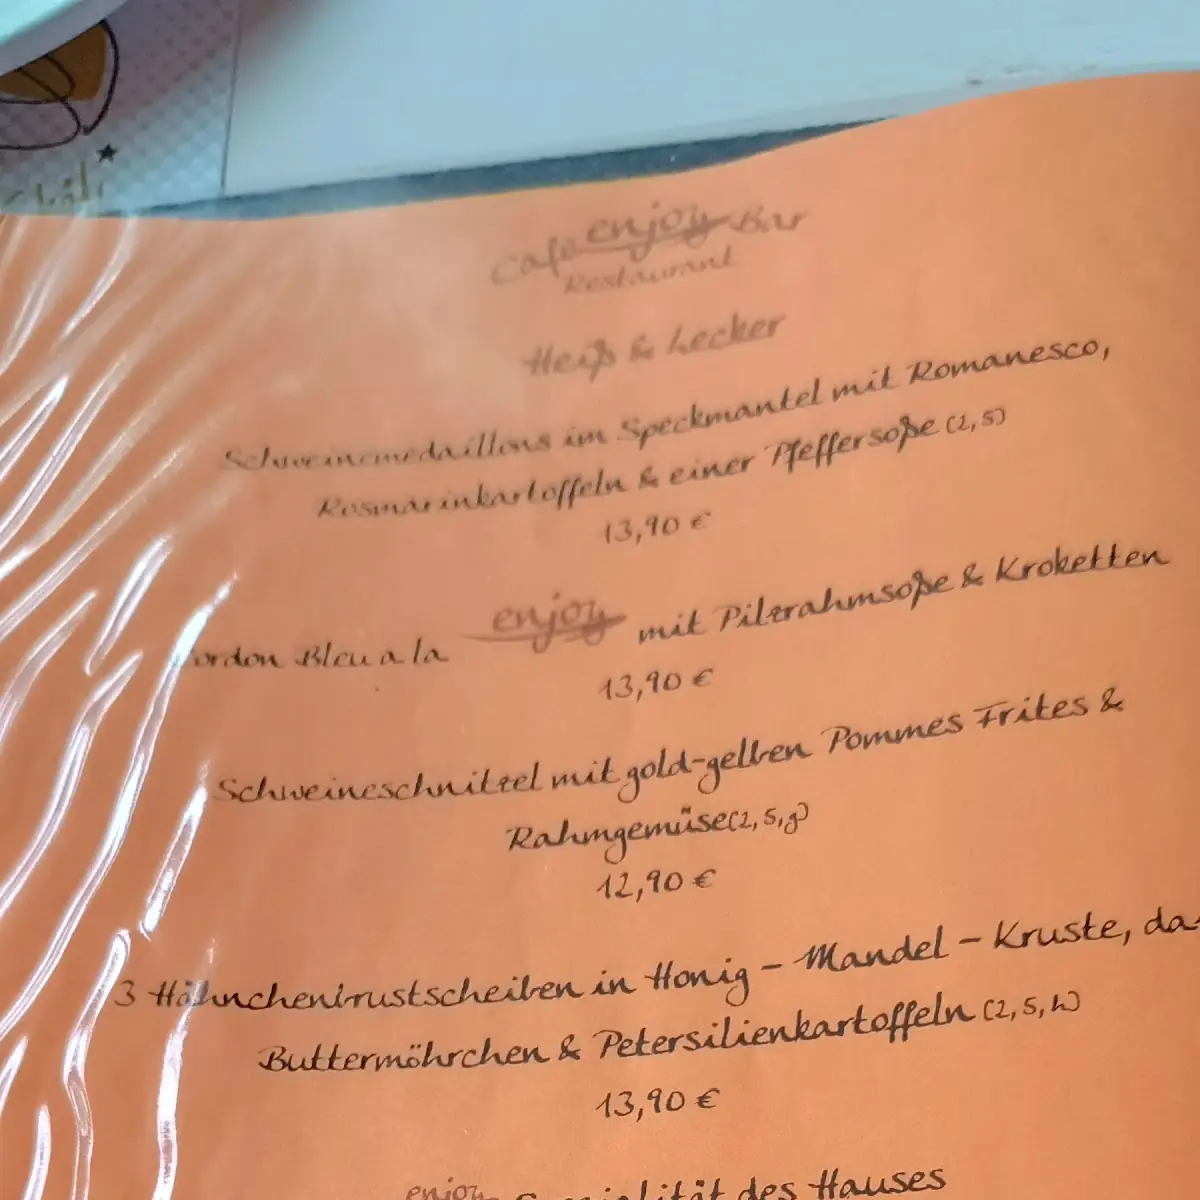 Cafe enjoy Bar
Restaurant
Heiß & Lecker
Schweinemedaillons im Speckmantel mit Romanesco,
Rosmarinkartoffeln & einer Pfeffersoße (2,5)
13,90 €
Cordon Bleu a la enjoy mit Pilzrahmsoße & Kroketten
13,90 €
Schweineschnitzel mit gold-gelben Pommes Frites &
Rahmgemüse(2,5,g)
12,90 €
3 Hähnchenbrustscheiben in Honig - Mandel - Kruste, da
Buttermöhrchen & Petersilienkartoffeln (2,5,h)
13,90 €
enjoy Spezialität des Hauses